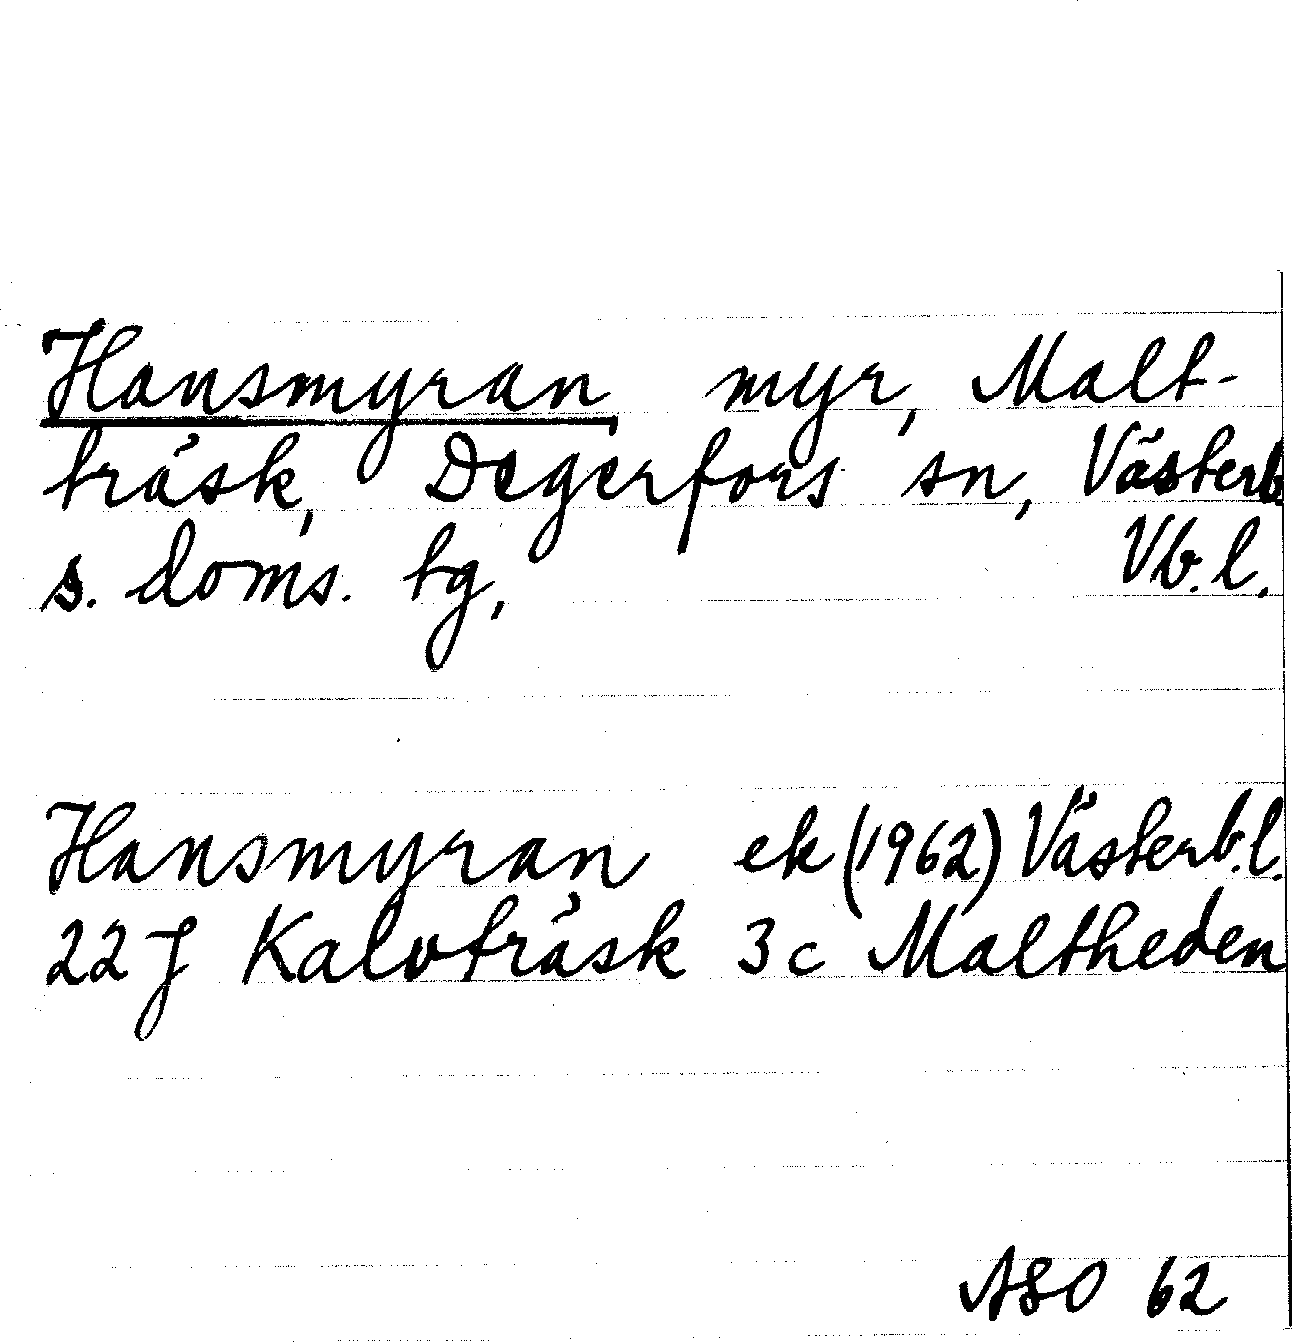 Hansmyran, myr, Malt-
träsk, Degerfors sn, Västerb.
s. doms. tg, Vb. l.
Hansmyran ek (1962) Västerb.l.
22 J Kalvträsk 3 c Maltheden
ASO 62